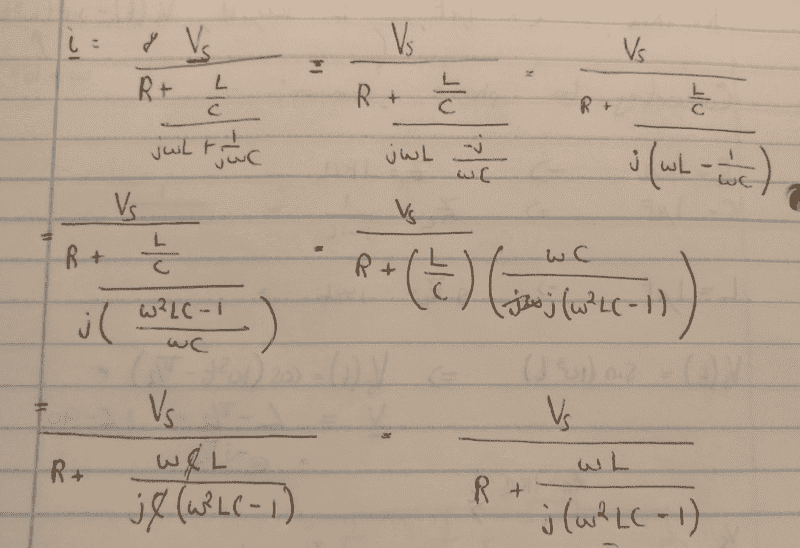 i = V_s / (R + (L/C) / (jωL + 1/jωC)) = V_s / (R + (L/C) / (jωL -j/ωC)) = V_s / (R + (L/C) / (j(ωL - 1/ωC)))
= V_s / (R + (L/C) / (j((ω²LC-1)/ωC))) = V_s / (R + (L/C)(ωC / (j(ω²LC-1))))
= V_s / (R + ωCL / (jC(ω²LC-1))) = V_s / (R + ωL / (j(ω²LC-1)))